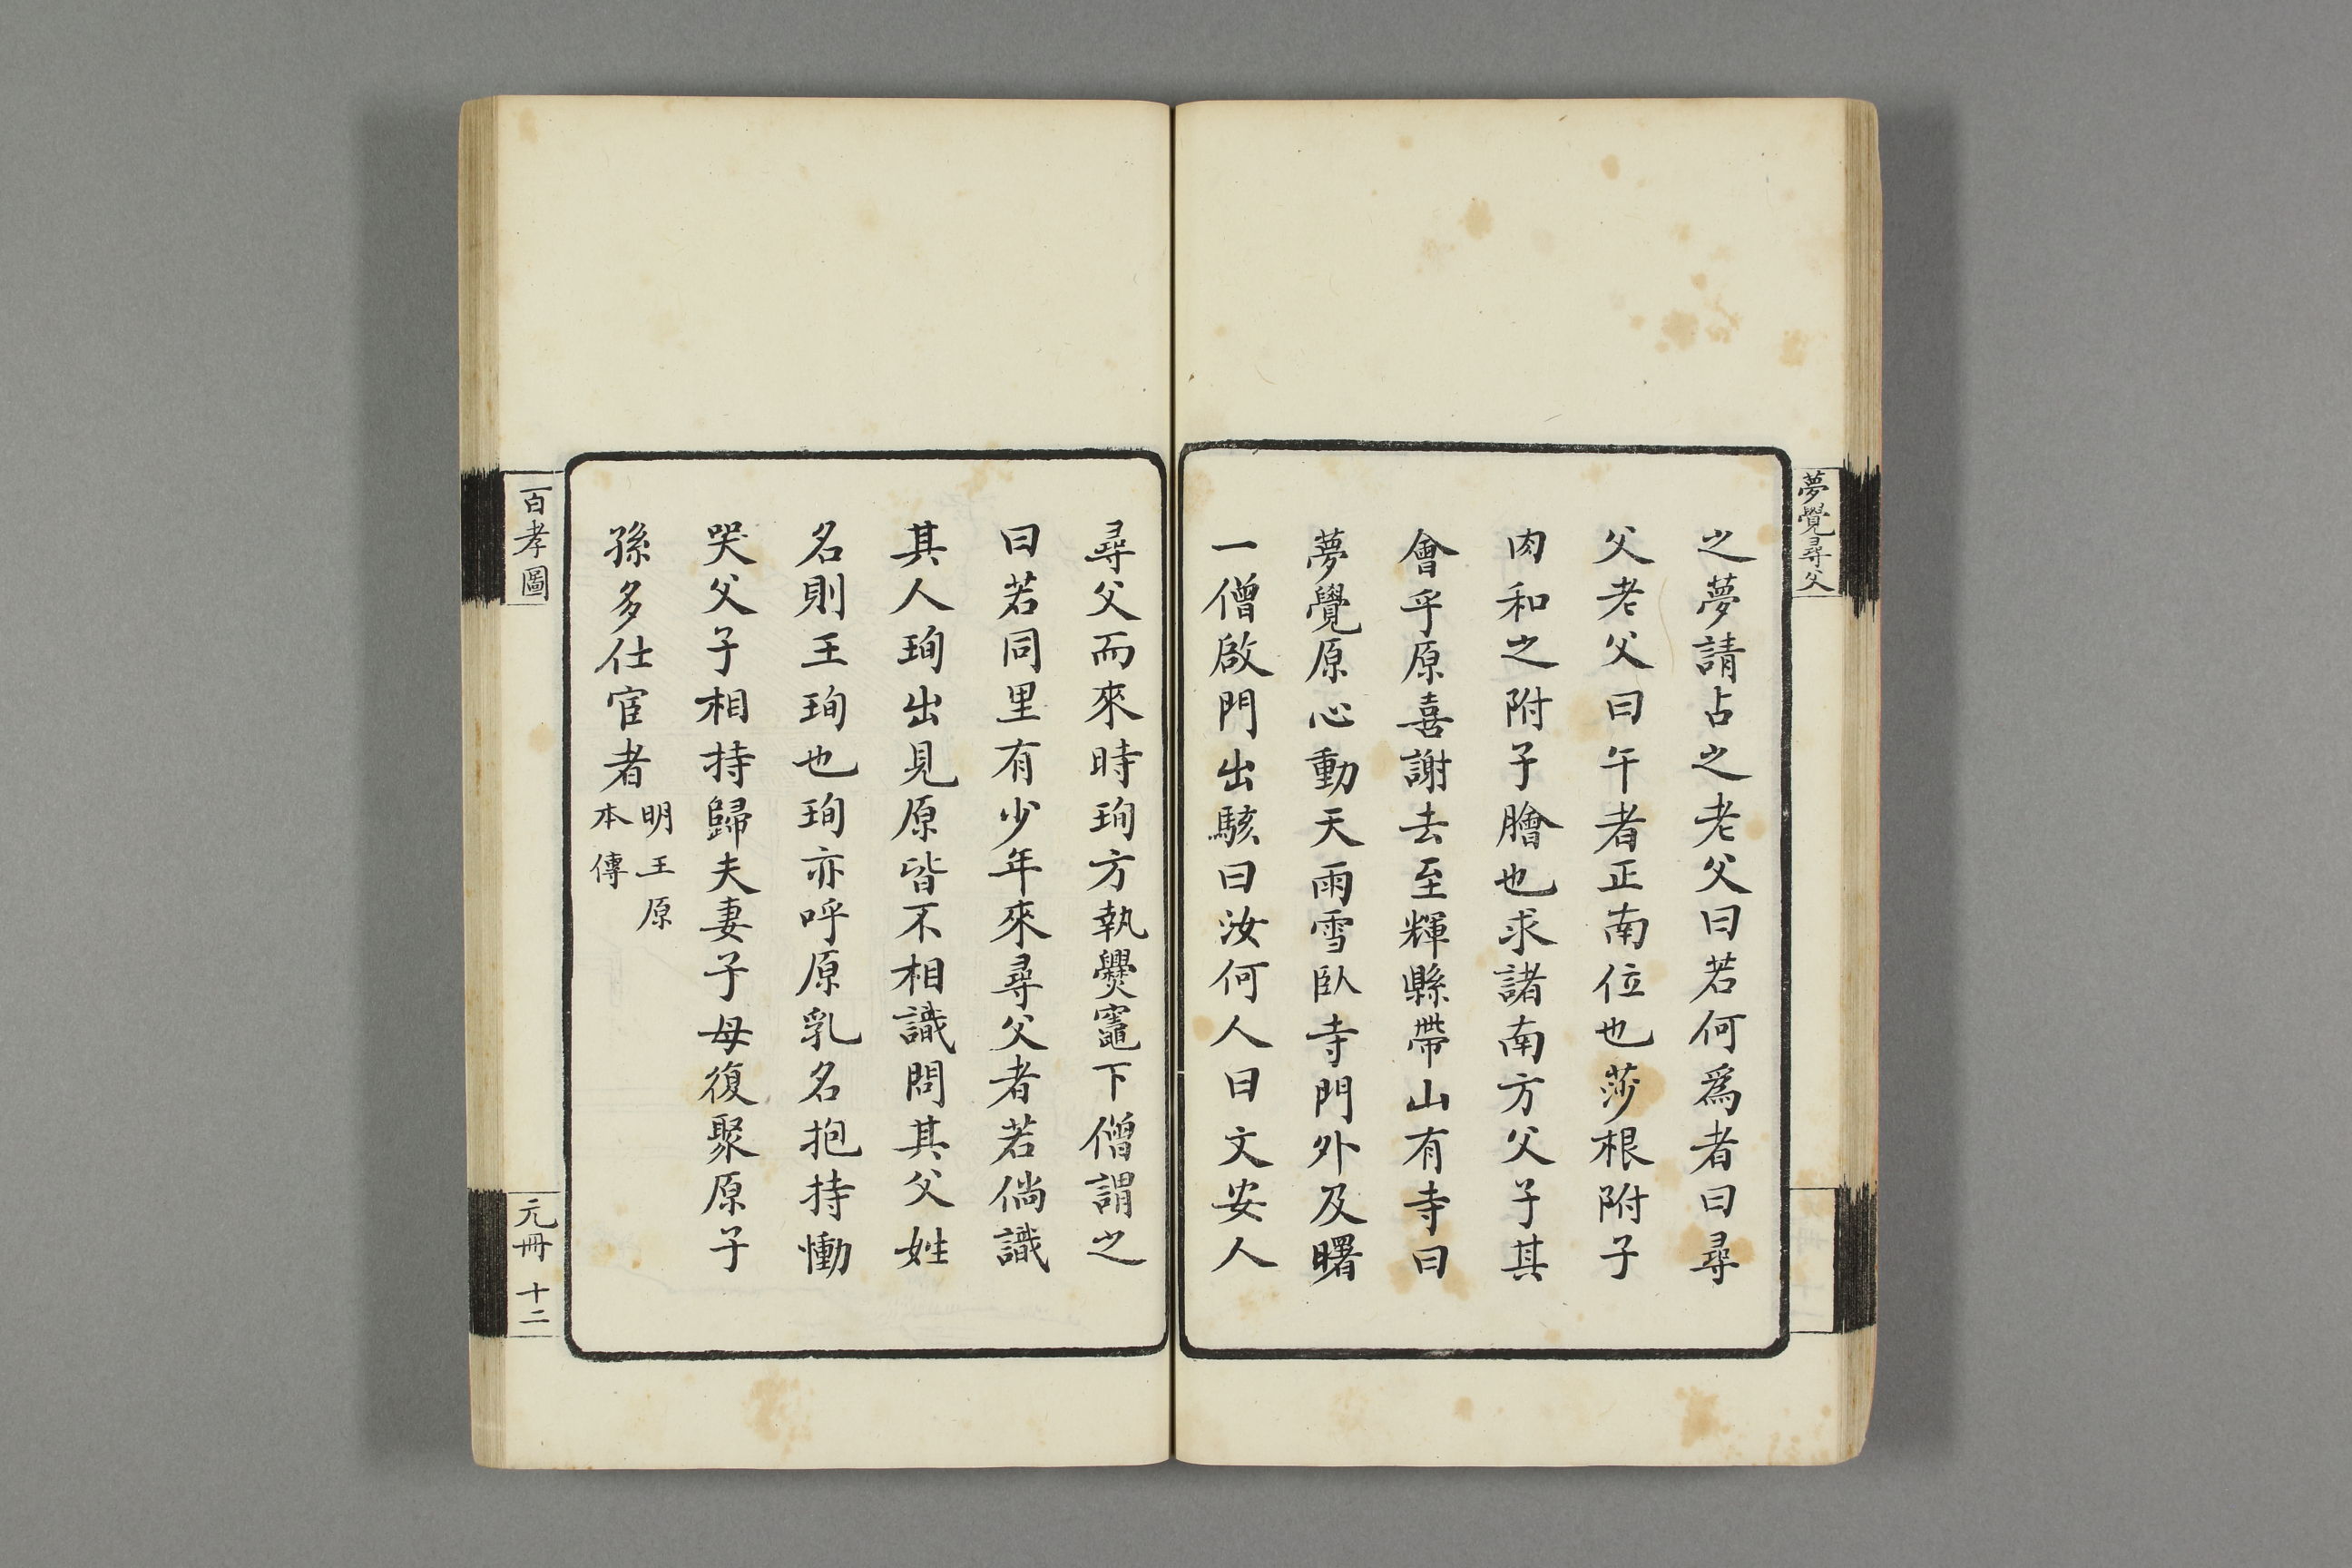 夢覺尋父
之夢請占之老父曰若何為者曰尋
父老父曰午者正南位也莎根附子
肉和之附子膾也求諸南方父子其
會乎原喜謝去至輝縣帶山有寺曰
夢覺原心動天雨雪臥寺門外及曙
一僧啟門出駭曰汝何人曰文安人
尋父而來時珣方執爨竈下僧謂之
曰若同里有少年來尋父者若倘識
其人珣出見原皆不相識問其父姓
名則王珣也珣亦呼原乳名抱持慟
哭父子相持歸夫妻子母復聚原子
孫多仕宦者
明王原
本傳
百孝圖
元冊 十二